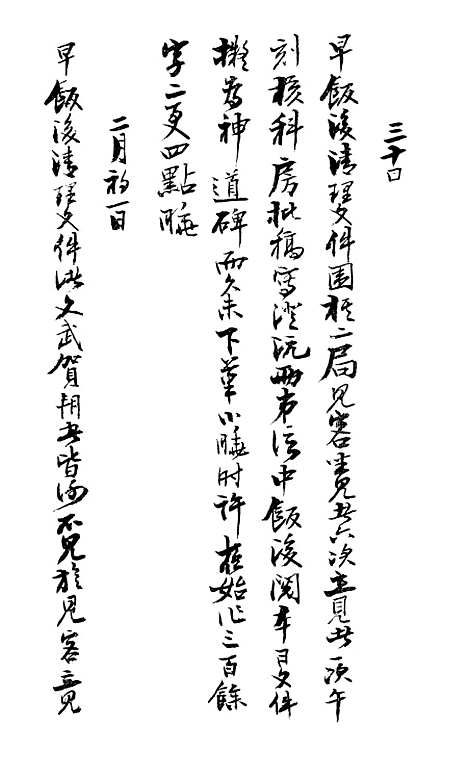 三十日
早飯後清理文件圍棋二局見客坐見者六次立見者一次午
刻核科房批稿寫澄沅兩弟信中飯後閱本日文件
擬為神道碑而久未下筆小睡時許夜始作三百餘
字二更四點睡
二月初一日
早飯後清理文件以文武賀朔者皆謝不見旋見客立見